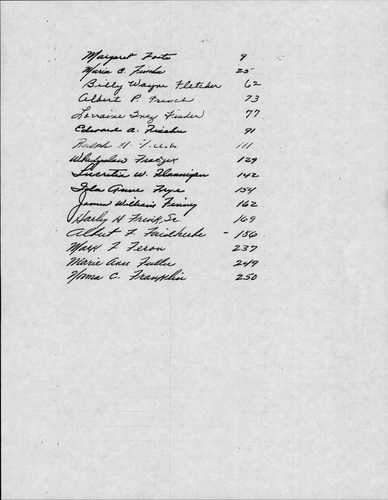 Margaret Foste 9
Maria C. 25
Billy Wayne Fletcher 62
Albert P. French 73
Lorraine Inez Fisher 77
Edward A. Fischer 91
Ralph H. 111
Frazer 129
Lucretia W. Flannigan 142
Ida Anne Frye 154
James William Finny 162
Harly H. Frink, Sr. 169
Albert F. Faidherbe - 156
Max F. Feron 237
Marie Ann Fuller 249
Norma C. Franklin 250